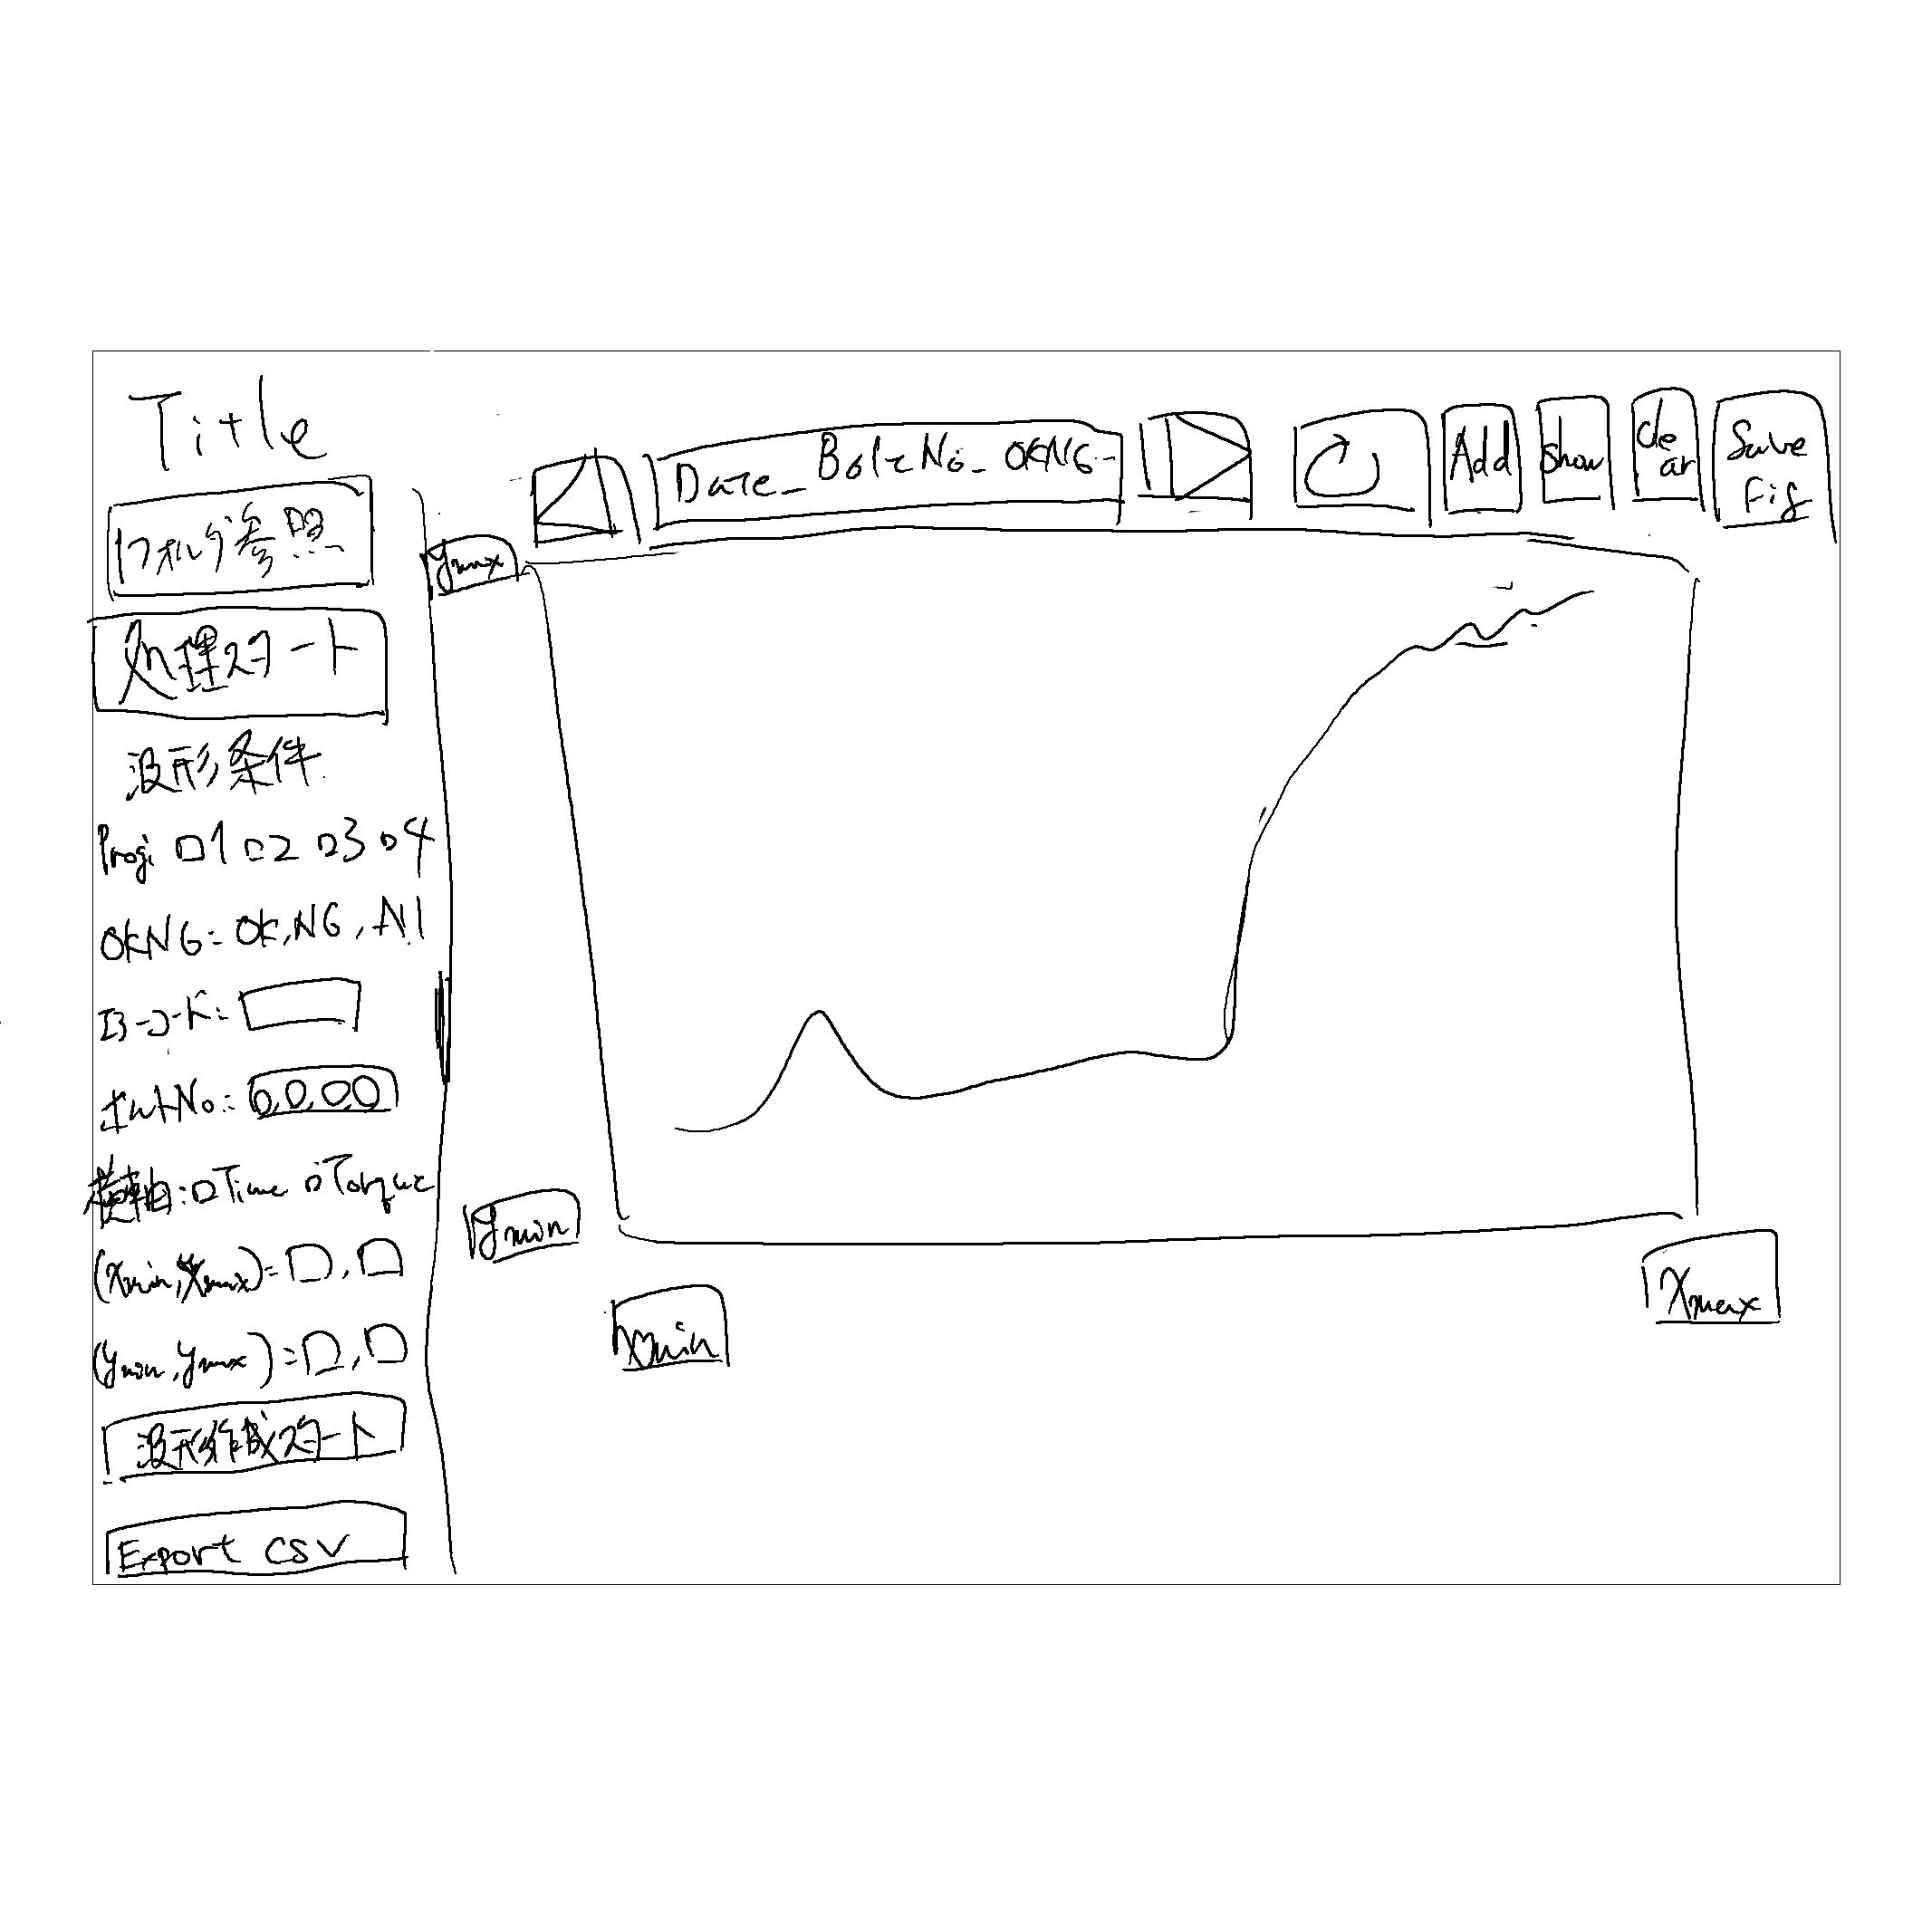 Title
フォルダ参照
処理スタート
波形条件
Prog: □1 □2 □3 □4
OKNG = OK, NG, All
エラーコード:
ボルトNo.: 0,0,0,0
横軸: □Time □Torque
(xmin, xmax) = □, □
(ymin, ymax) = □, □
波形作成スタート
Export csv
Date_BoltNo_OKNG-
Add
show
clear
Save
Fig
ymax
ymin
xmin
xmax